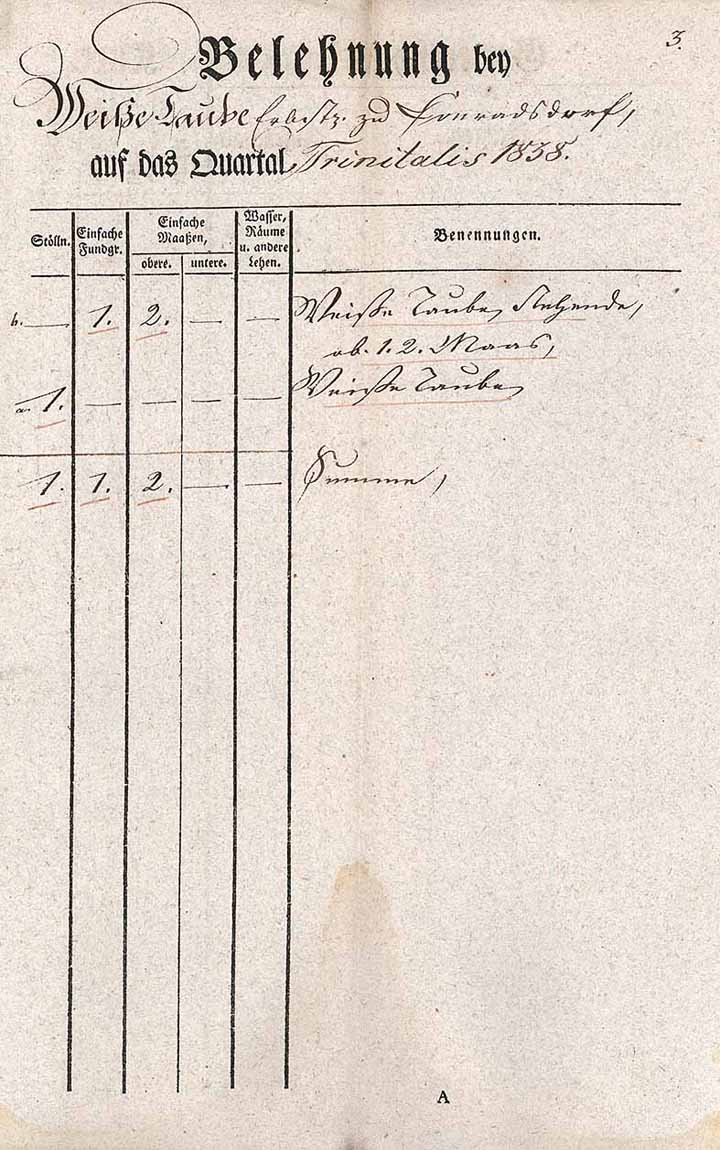 3.
Belehnung bey
Weiße Taube Erbstz. zu Conradsdorf,
auf das Quartal Trinitatis 1838.
Stölln. Einfache Fundgr. Einfache Maaßen, obere. untere. Wasser, Räume u. andere Lehen. Benennungen.
b. — 1. 2. — — Weiße Taube, stehende,
ob. 1. 2. Maas,
a. 1. — — — — Weiße Taube
1. 1. 2. — — Summe,
A